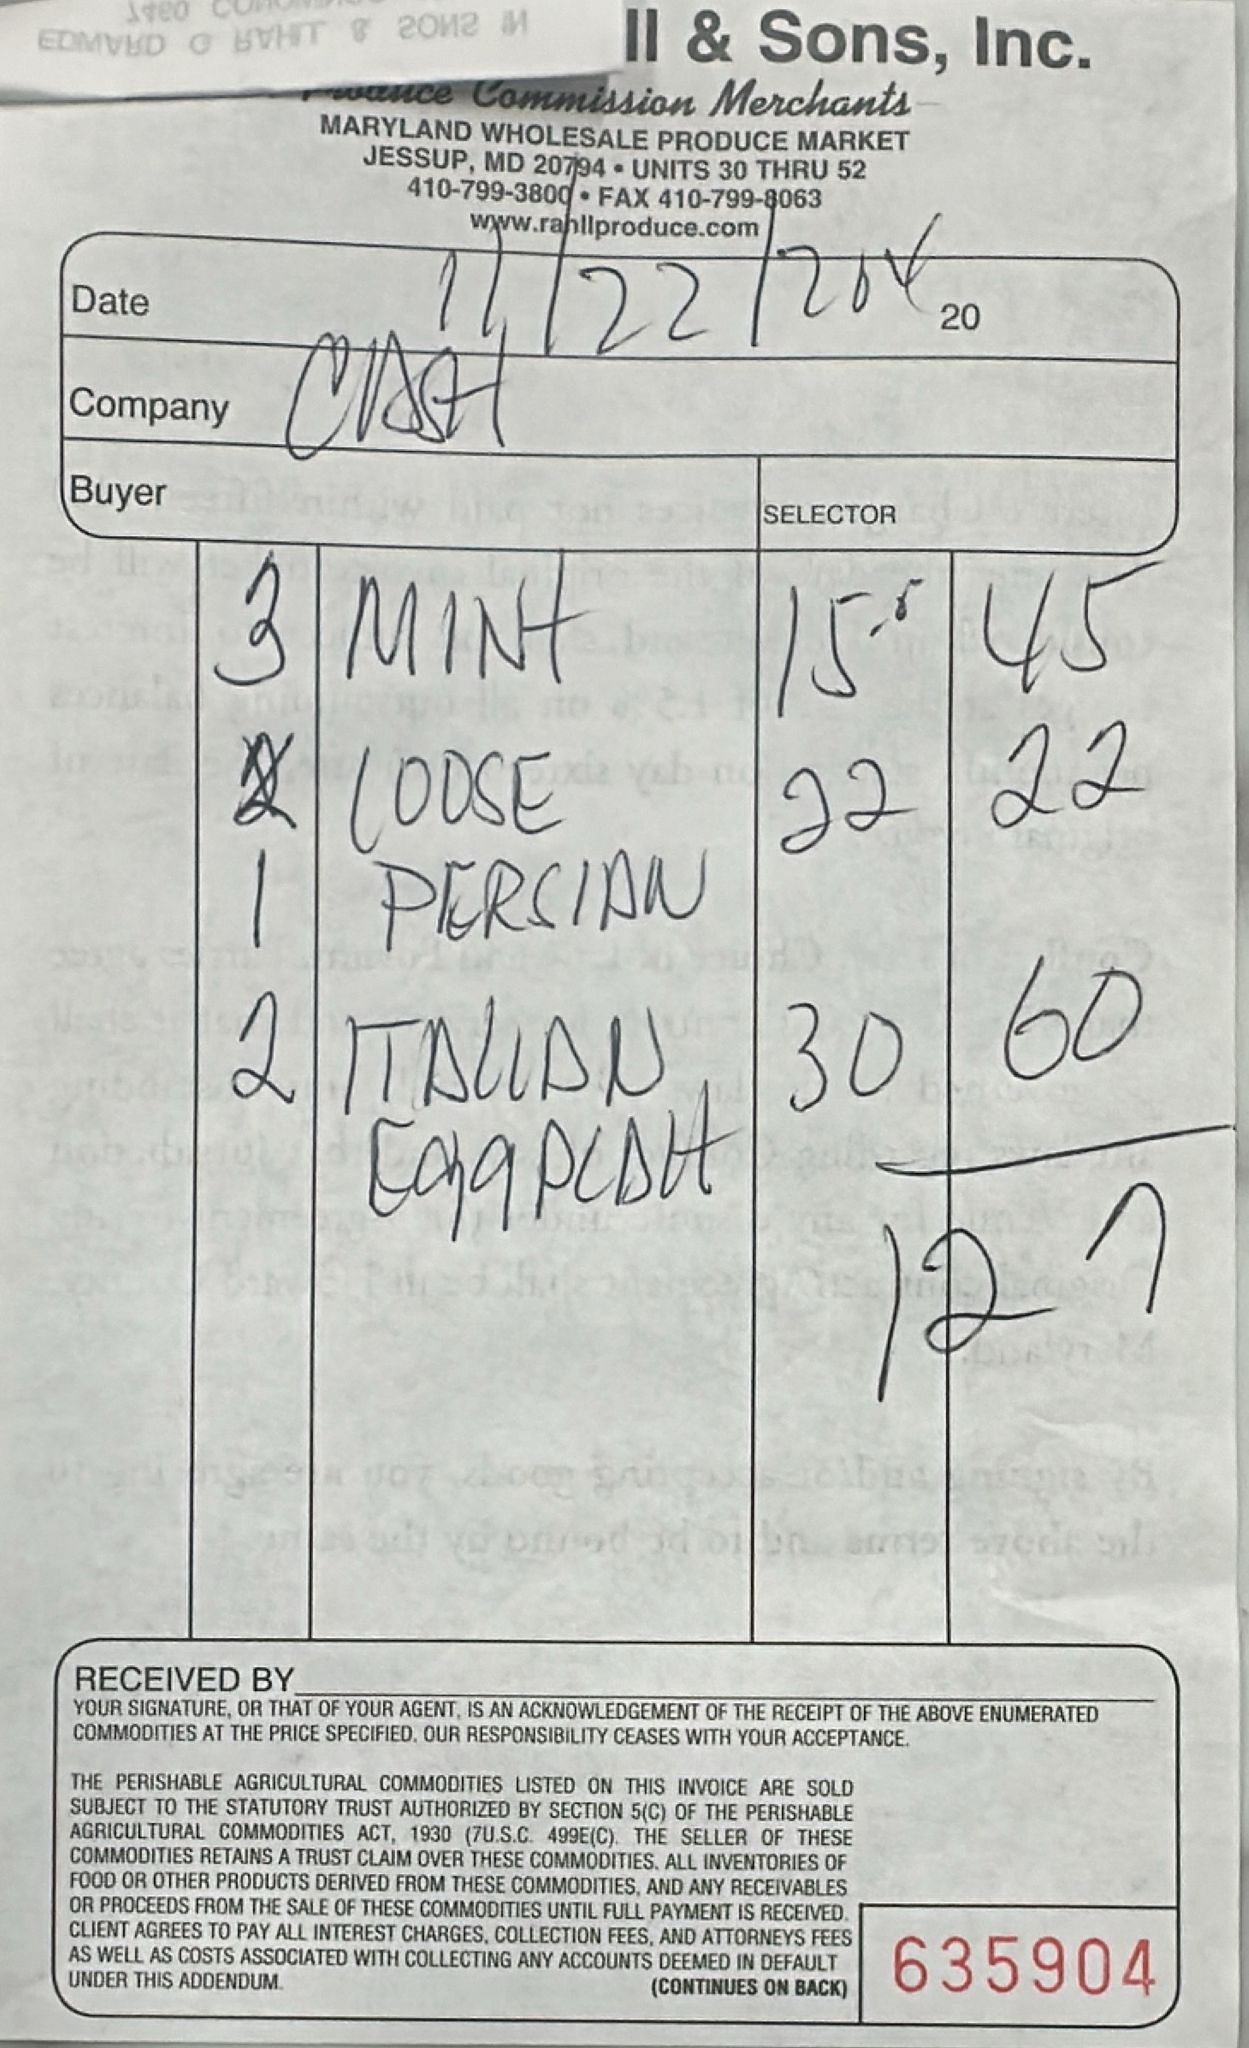 EDWARD G RAHLL & SONS IN
ll & Sons, Inc.
Produce Commission Merchants
MARYLAND WHOLESALE PRODUCE MARKET
JESSUP, MD 20794 • UNITS 30 THRU 52
410-799-3800 • FAX 410-799-8063
www.rahllproduce.com
Date 11/22/204 20
Company CASH
Buyer SELECTOR
3 MINT 15 45
LOOSE 22 22
1 PERSIAN
2 ITALIAN 30 60
EggPLANT
127
RECEIVED BY
YOUR SIGNATURE, OR THAT OF YOUR AGENT, IS AN ACKNOWLEDGEMENT OF THE RECEIPT OF THE ABOVE ENUMERATED
COMMODITIES AT THE PRICE SPECIFIED. OUR RESPONSIBILITY CEASES WITH YOUR ACCEPTANCE.
THE PERISHABLE AGRICULTURAL COMMODITIES LISTED ON THIS INVOICE ARE SOLD
SUBJECT TO THE STATUTORY TRUST AUTHORIZED BY SECTION 5(C) OF THE PERISHABLE
AGRICULTURAL COMMODITIES ACT, 1930 (7U.S.C. 499E(C). THE SELLER OF THESE
COMMODITIES RETAINS A TRUST CLAIM OVER THESE COMMODITIES. ALL INVENTORIES OF
FOOD OR OTHER PRODUCTS DERIVED FROM THESE COMMODITIES, AND ANY RECEIVABLES
OR PROCEEDS FROM THE SALE OF THESE COMMODITIES UNTIL FULL PAYMENT IS RECEIVED.
CLIENT AGREES TO PAY ALL INTEREST CHARGES, COLLECTION FEES, AND ATTORNEYS FEES
AS WELL AS COSTS ASSOCIATED WITH COLLECTING ANY ACCOUNTS DEEMED IN DEFAULT
UNDER THIS ADDENDUM. (CONTINUES ON BACK)
635904